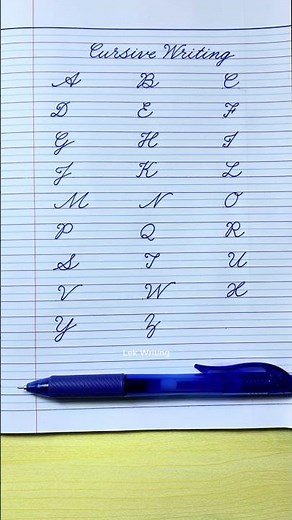 Cursive Writing
A B C
D E F
G H I
J K L
M N O
P Q R
S T U
V W X
Y Z
Link Writing